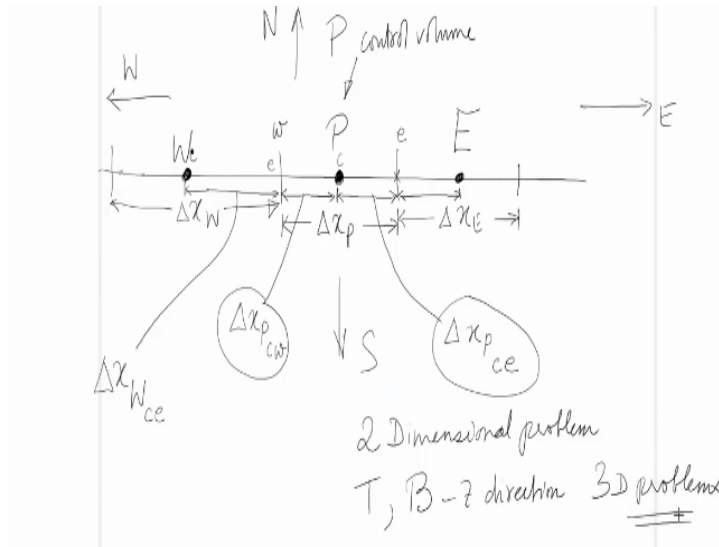 N P control volume
W
E
w P e E
Wc e c
Δx_W Δx_P Δx_E
Δx_P_cw Δx_P_ce
S
Δx_W_ce
2 Dimensional problem
T, B - z direction 3D problems